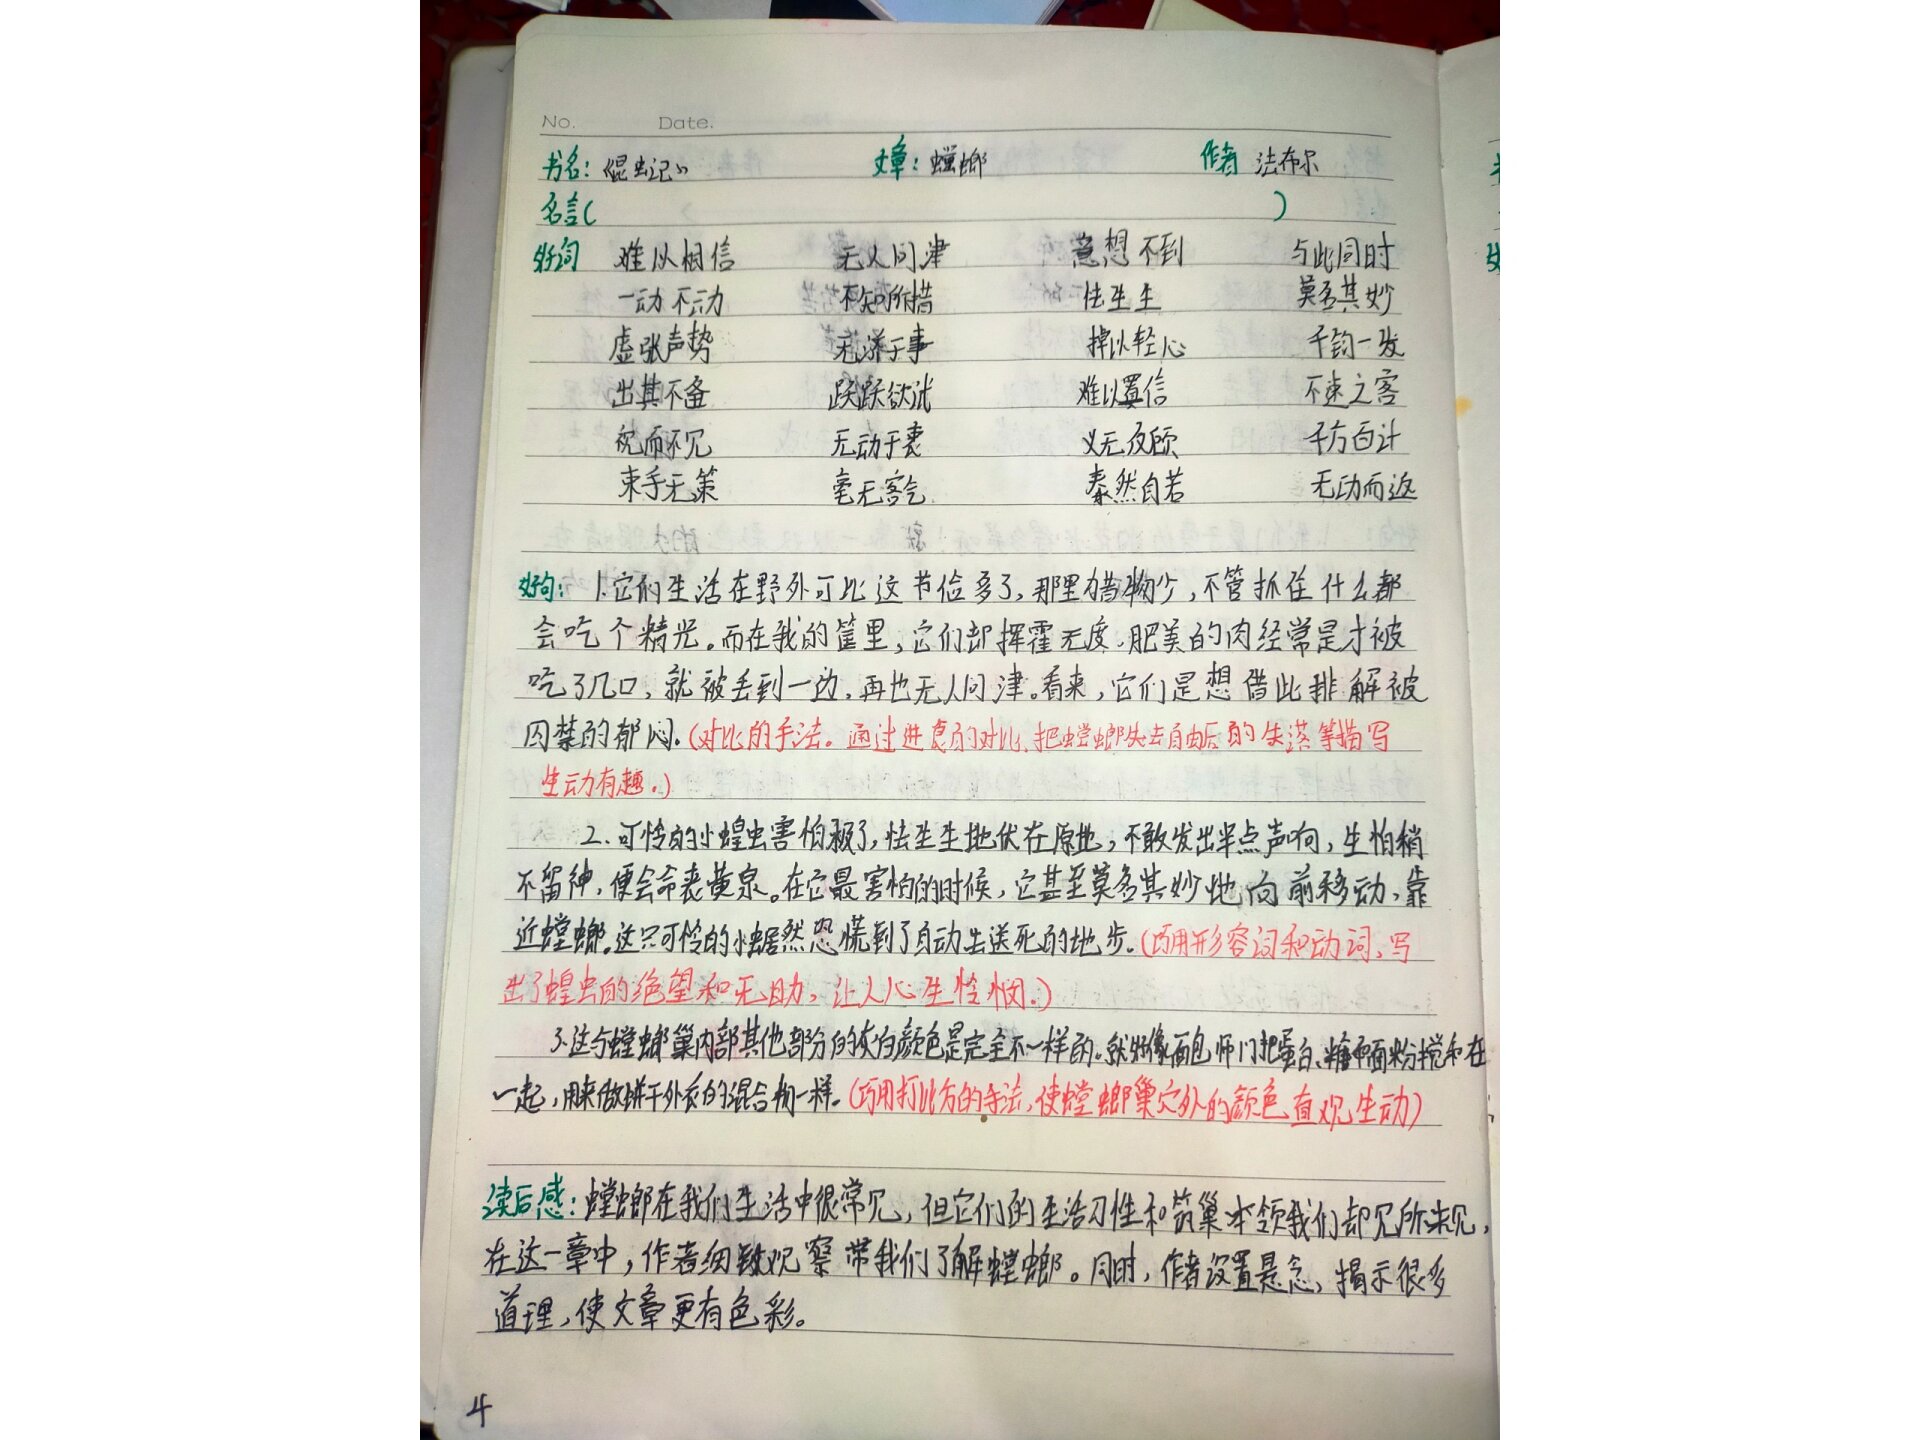 No. Date.
书名：《昆虫记》 文章：螳螂 作者 法布尔
名言( )
好词 难以相信 无人问津 意想不到 与此同时
一动不动 不知所措 怯生生 莫名其妙
虚张声势 无济于事 掉以轻心 千钧一发
出其不备 跃跃欲试 难以置信 不速之客
视而不见 无动于衷 义无反顾 千方百计
束手无策 毫无客气 泰然自若 无动而返
好句：1.它们生活在野外可比这节俭多了，那里猎物少，不管抓住什么都
会吃个精光。而在我的笼里，它们却挥霍无度，肥美的肉经常是才被
吃了几口，就被丢到一边，再也无人问津。看来，它们是想借此排解被
囚禁的郁闷。(对比的手法。通过进食的对比，把螳螂失去自由后的失落等描写
生动有趣。)
2.可怜的小蝗虫害怕极了，怯生生地伏在原地，不敢发出半点声响，生怕稍
不留神，便会命丧黄泉。在它最害怕的时候，它甚至莫名其妙地向前移动，靠
近螳螂。这只可怜的小虫居然恐慌到了自动去送死的地步。(巧用形容词和动词，写
出了蝗虫的绝望和无助，让人心生怜悯。)
3.这与螳螂巢内部其他部分的灰白颜色是完全不一样的。就好像面包师们把蛋白、糖和面粉搅和在
一起，用来做饼干外衣的混合物一样。(巧用打比方的手法，使螳螂巢穴外的颜色直观生动)
读后感：螳螂在我们生活中很常见，但它们的生活习性和筑巢本领我们却见所未见，
在这一章中，作者细致观察带我们了解螳螂。同时，作者设置悬念，揭示很多
道理，使文章更有色彩。
4